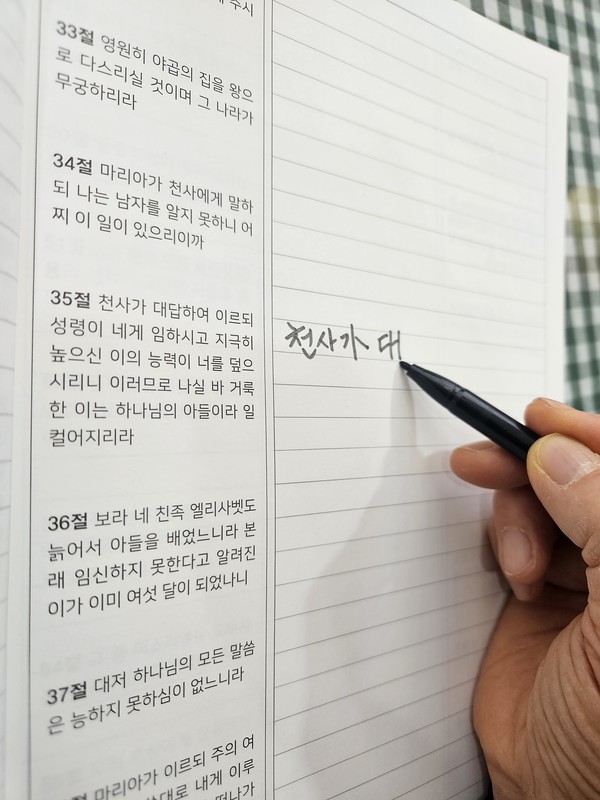 주시
33절 영원히 야곱의 집을 왕으
로 다스리실 것이며 그 나라가
무궁하리라
34절 마리아가 천사에게 말하
되 나는 남자를 알지 못하니 어
찌 이 일이 있으리이까
35절 천사가 대답하여 이르되
성령이 네게 임하시고 지극히
높으신 이의 능력이 너를 덮으
시리니 이러므로 나실 바 거룩
한 이는 하나님의 아들이라 일
컬어지리라
천사가 대
36절 보라 네 친족 엘리사벳도
늙어서 아들을 배었느니라 본
래 임신하지 못한다고 알려진
이가 이미 여섯 달이 되었나니
37절 대저 하나님의 모든 말씀
은 능하지 못하심이 없느니라
절 마리아가 이르되 주의 여
대로 내게 이루
떠나가